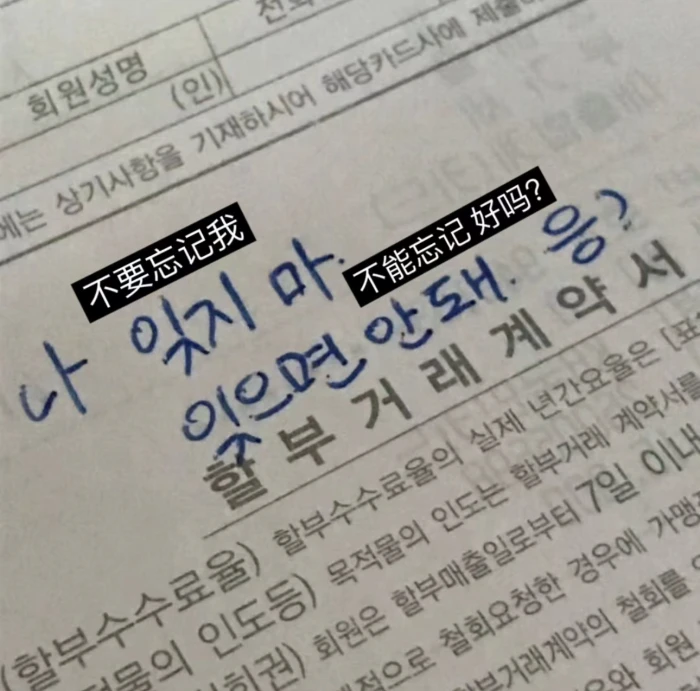 전화
회원성명
(인)
에는 상기사항을 기재하시어 해당카드사에 제출하
不要忘记我
不能忘记 好吗?
나 잊지 마.
잊으면 안돼. 응?
할부거래계약서
(할부수수료율) 할부수수료율의 실제 년간요율은
목적물의 인도등) 목적물의 인도는 할부거래 계약서를
철회권) 회원은 할부매출일로부터 7일 이내
적으로 철회요청한 경우에 가맹
부거래계약의 철회를
와 회원